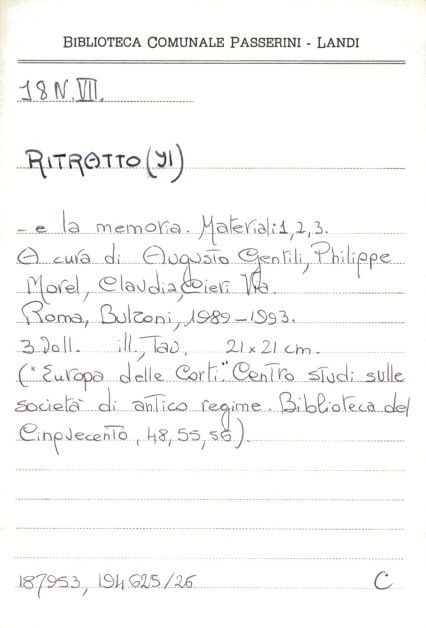 BIBLIOTECA COMUNALE PASSERINI - LANDI
J8N.VII.
RITRATTO (Il)
- e la memoria. Materiali: 1, 2, 3.
A cura di Augusto Gentili, Philippe
Morel, Claudia Cieri Via.
Roma, Bulzoni, 1989-1993.
3 Voll. ill., Tav. 21x21 cm.
("Europa delle Corti." Centro studi sulle
società di antico regime. Biblioteca del
Cinquecento, 48, 55, 56).
187953, 194625/26 C